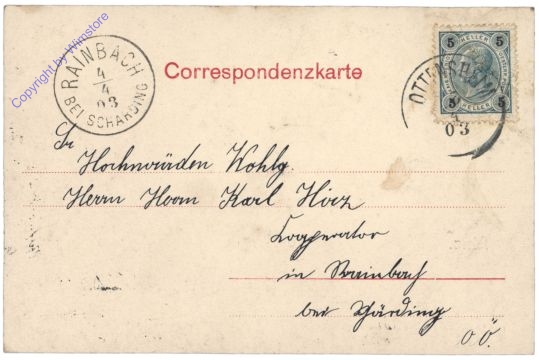 Copyright by Wimstore
RAINBACH
4
4
03
BEI SCHÄRDING
Correspondenzkarte
5 5
HELLER
5 5
HELLER
OTTENSHEIM
4
03
Sr
Hochwürden Wohlg.
Herrn Herrn Karl
Cooperator
in Rainbach
bei Schärding
OÖ.